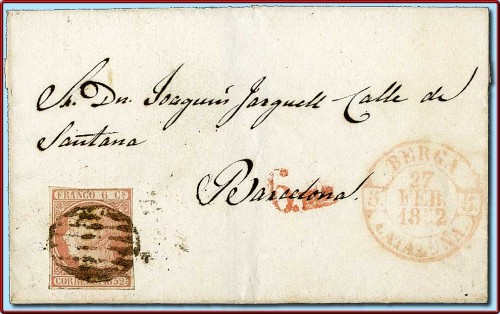 Sr. Dn. Joaquin Jarguell Calle de
Santana
Barcelona.
BERGA
27
FEB
1852
CATALUÑA
FRANCO 6 Cs
CORREOS 1852